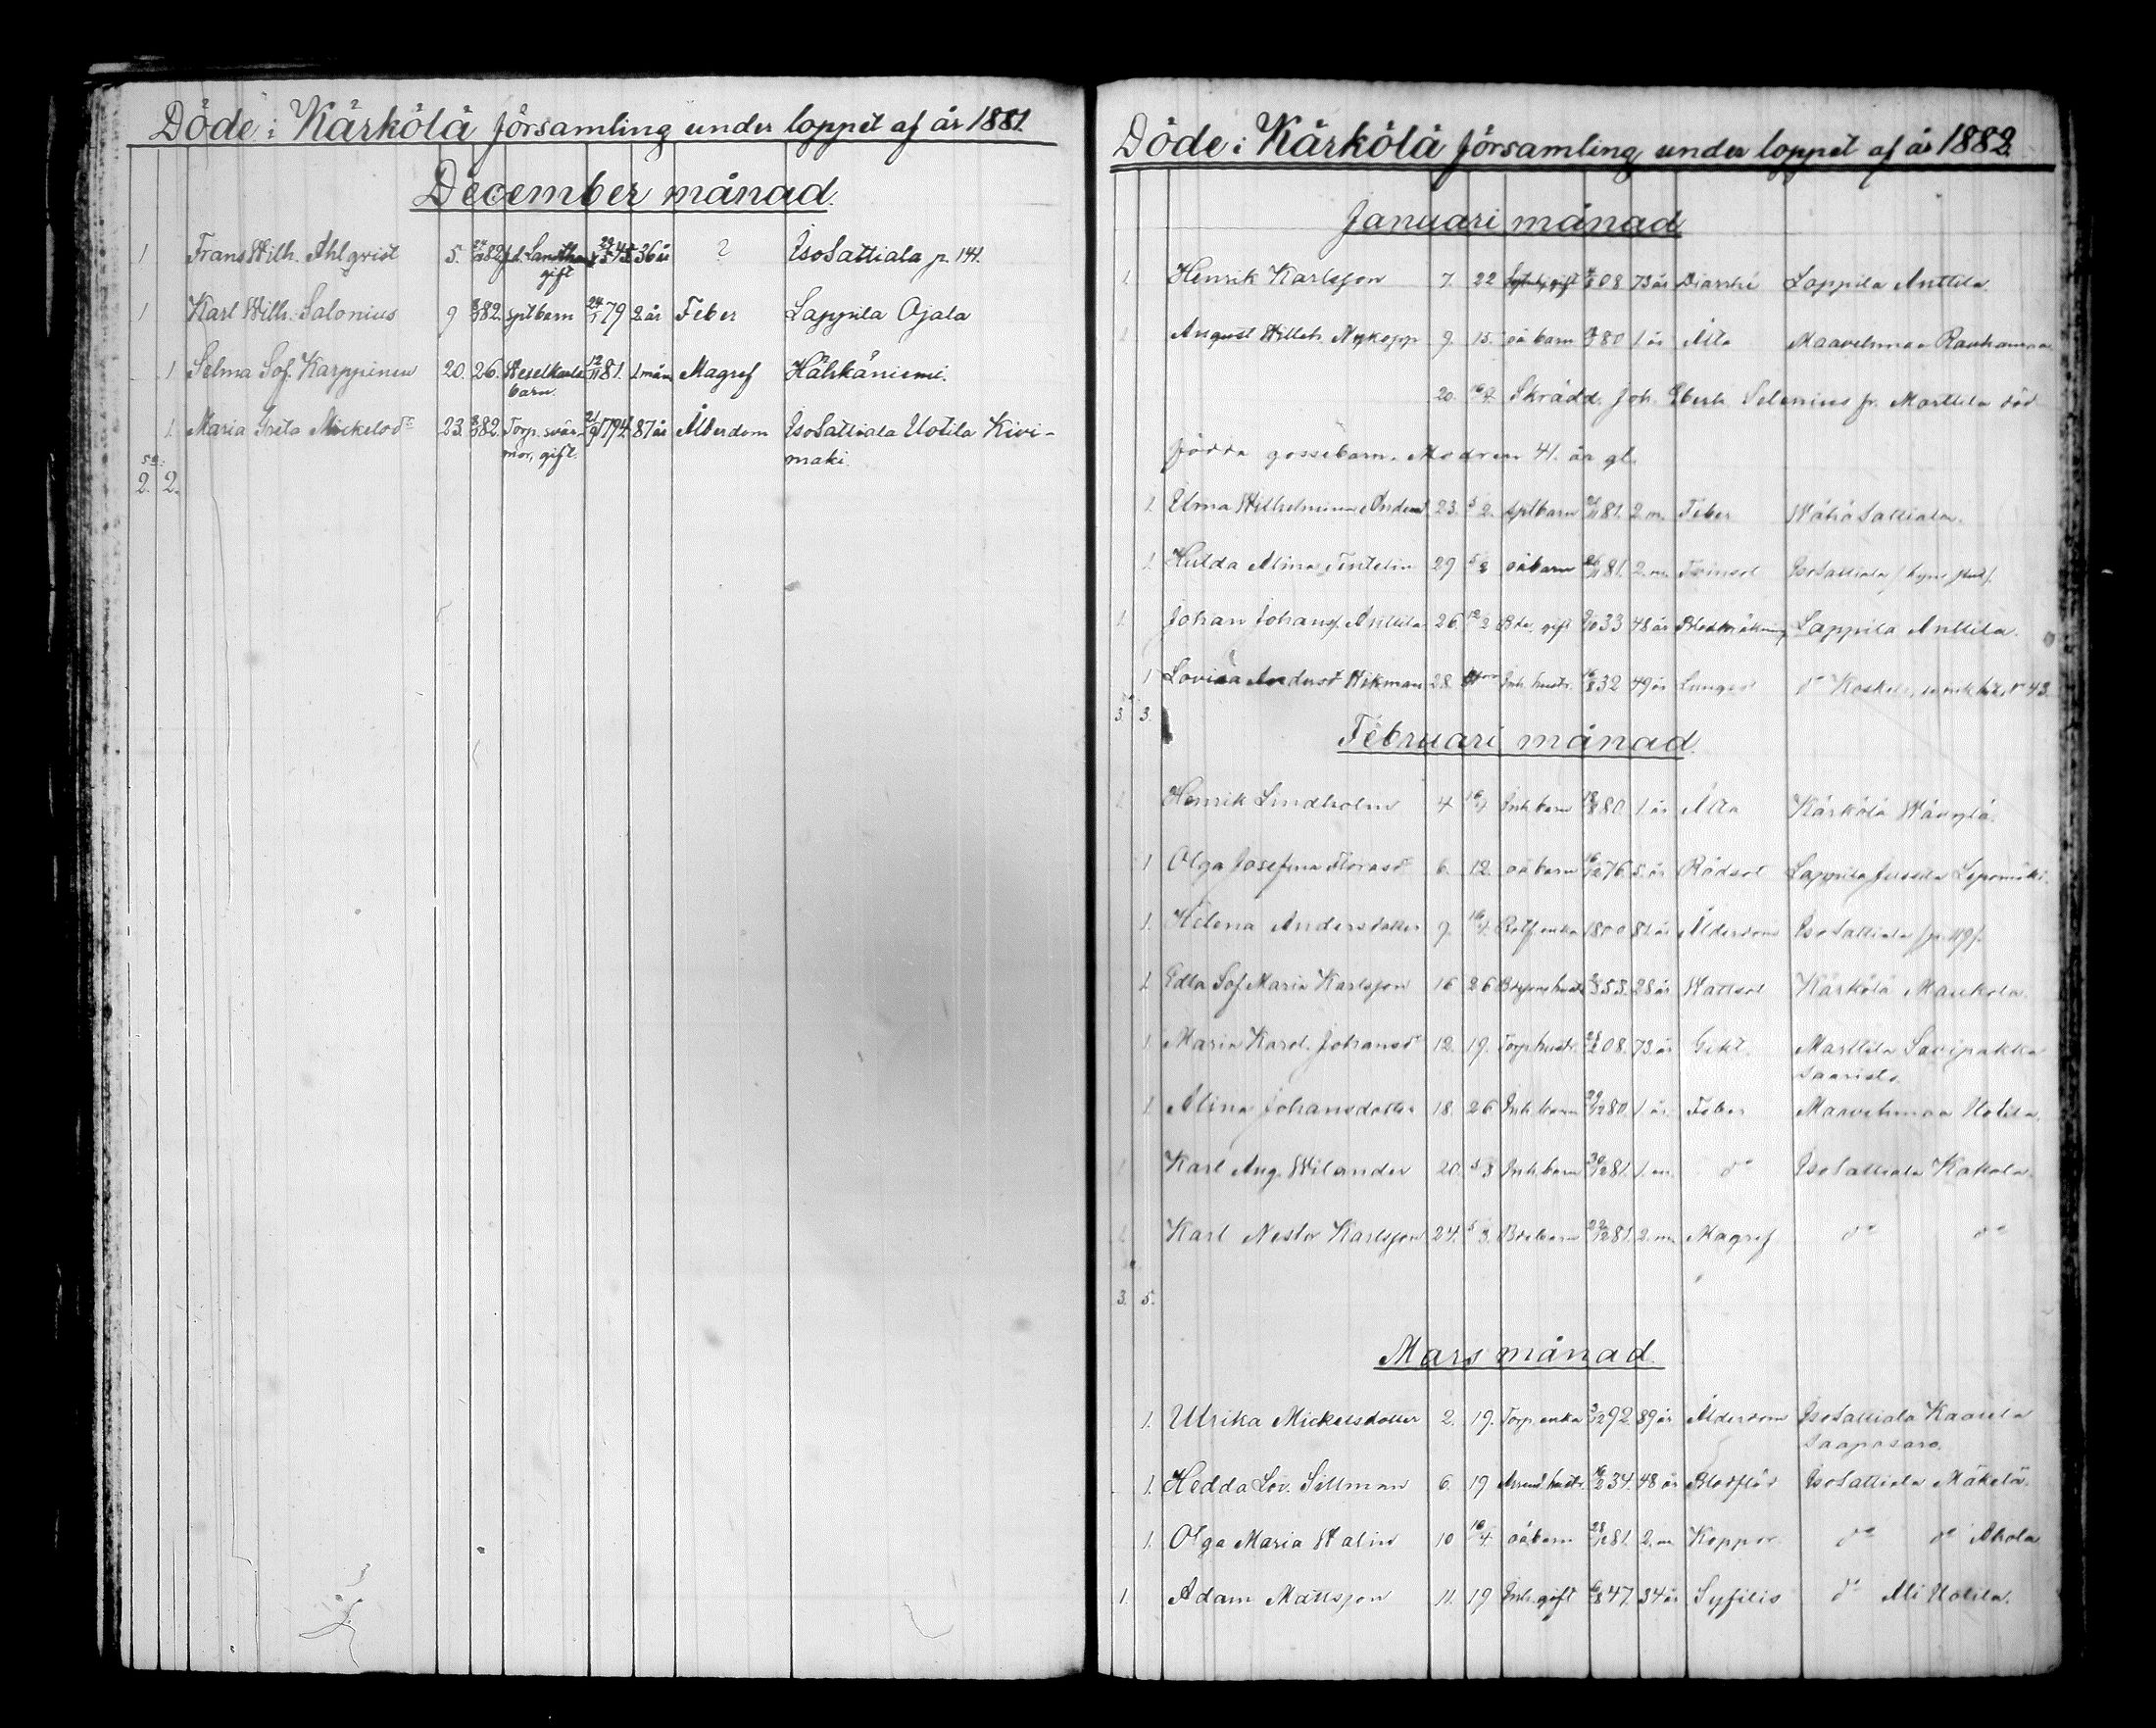 Döde i Kärkölä församling under loppet af år 1881.
December månad.
1 Frans Wilh. Ahlqvist 5. 36 år ? IsoSattiala p. 141.
gift
1 Karl Wilh. Salonius 9 82. sytl barn 24/1 79 2 år Feber Lappila Ojala
1 Selma Sof. Karppinen 20. 26. 12/11 81. 1. mån Magref Hähkäniemi.
barn.
1. Maria Greta Mickelsdr 23. 82. Torp. svär- 1794. 87 år Ålderdom IsoSattiala Uotila Kivi-
mor, gift. mäki
2. 2.
Döde i Kärkölä församling under loppet af år 1882.
Januari månad
1. Henrik Karlsson 7. 22 gift 08 73 år Diarrhé Lappila Anttila.
1 August Willeh. Nykopp 9. 15. oä barn 80 1. år Älta Maavehmaa Rauhamaa
20. 16/4. Skrädd. Joh. Eberh. Selenius fr. Marttila död
födda gossebarn. Modren 41. år gl.
1. Wilhelmina 23. 5/2. sytl barn 81. 2. m. Feber WähäSattiala.
1. Hulda Alina Tintelin 29 5/2 oä barn 81. 2. m. IsoSattiala
1. Johan Johans. Anttila 26. 12/2 gift 33 48 år Lappila Anttila.
1 Lovisa Andersd Wikman 28. Inh. hustr. 16/8 32 49 år Lungs do
3. 3.
Februari månad.
1 Henrik Lindholm 4 16/4 Inh. barn 80. 1. år Älta Kärkölä
1 Olga Josefina 6. 12. oä barn 16/12 76. 5. år Rödsot Lappila
1. Helena Andersdotter 9. 16/4. enka 1800 81. år Ålderdom IsoSattiala p. 119
1. Edla Sof. Maria Karlsson 16 26 53. 28 år Wattsot Kärkölä
1. Maria Karol. Johansdr 12. 19. Torp hustr. 08. 73. år Gikt. Marttila Savipakka
Saaristo.
1. Alina Johansdotter 18. 26 Inh. barn 29/12 80. 1. år. Feber Maavehmaa Uotila.
1 Karl Aug. Wilander 20. 5/3 Inh. barn 30/12 81. 1. m. do IsoSattiala Kakola.
1. Karl Nestor Karlsson 24. 5/3. Bdebarn 22/12 81. 2. m. Magref do do
3. 5.
Mars månad.
1. Ulrika Mickelsdotter 2. 19. Torp. enka 92 89 år Ålderdom IsoSattiala Kaarela
Saaposaro.
1. Hedda Lov. Sillman 6. 19 hustr. 16/2 34. 48 år Blodflöd IsoSattiala Mäkelä.
1. Olga Maria Walin 10 16/4. oä barn 28/12 81. 2. m. Koppor. do do Ahola
1. Adam Mattsson 11. 19 Inh. gift 47. 34 år Syfilis do Ali Uotila.